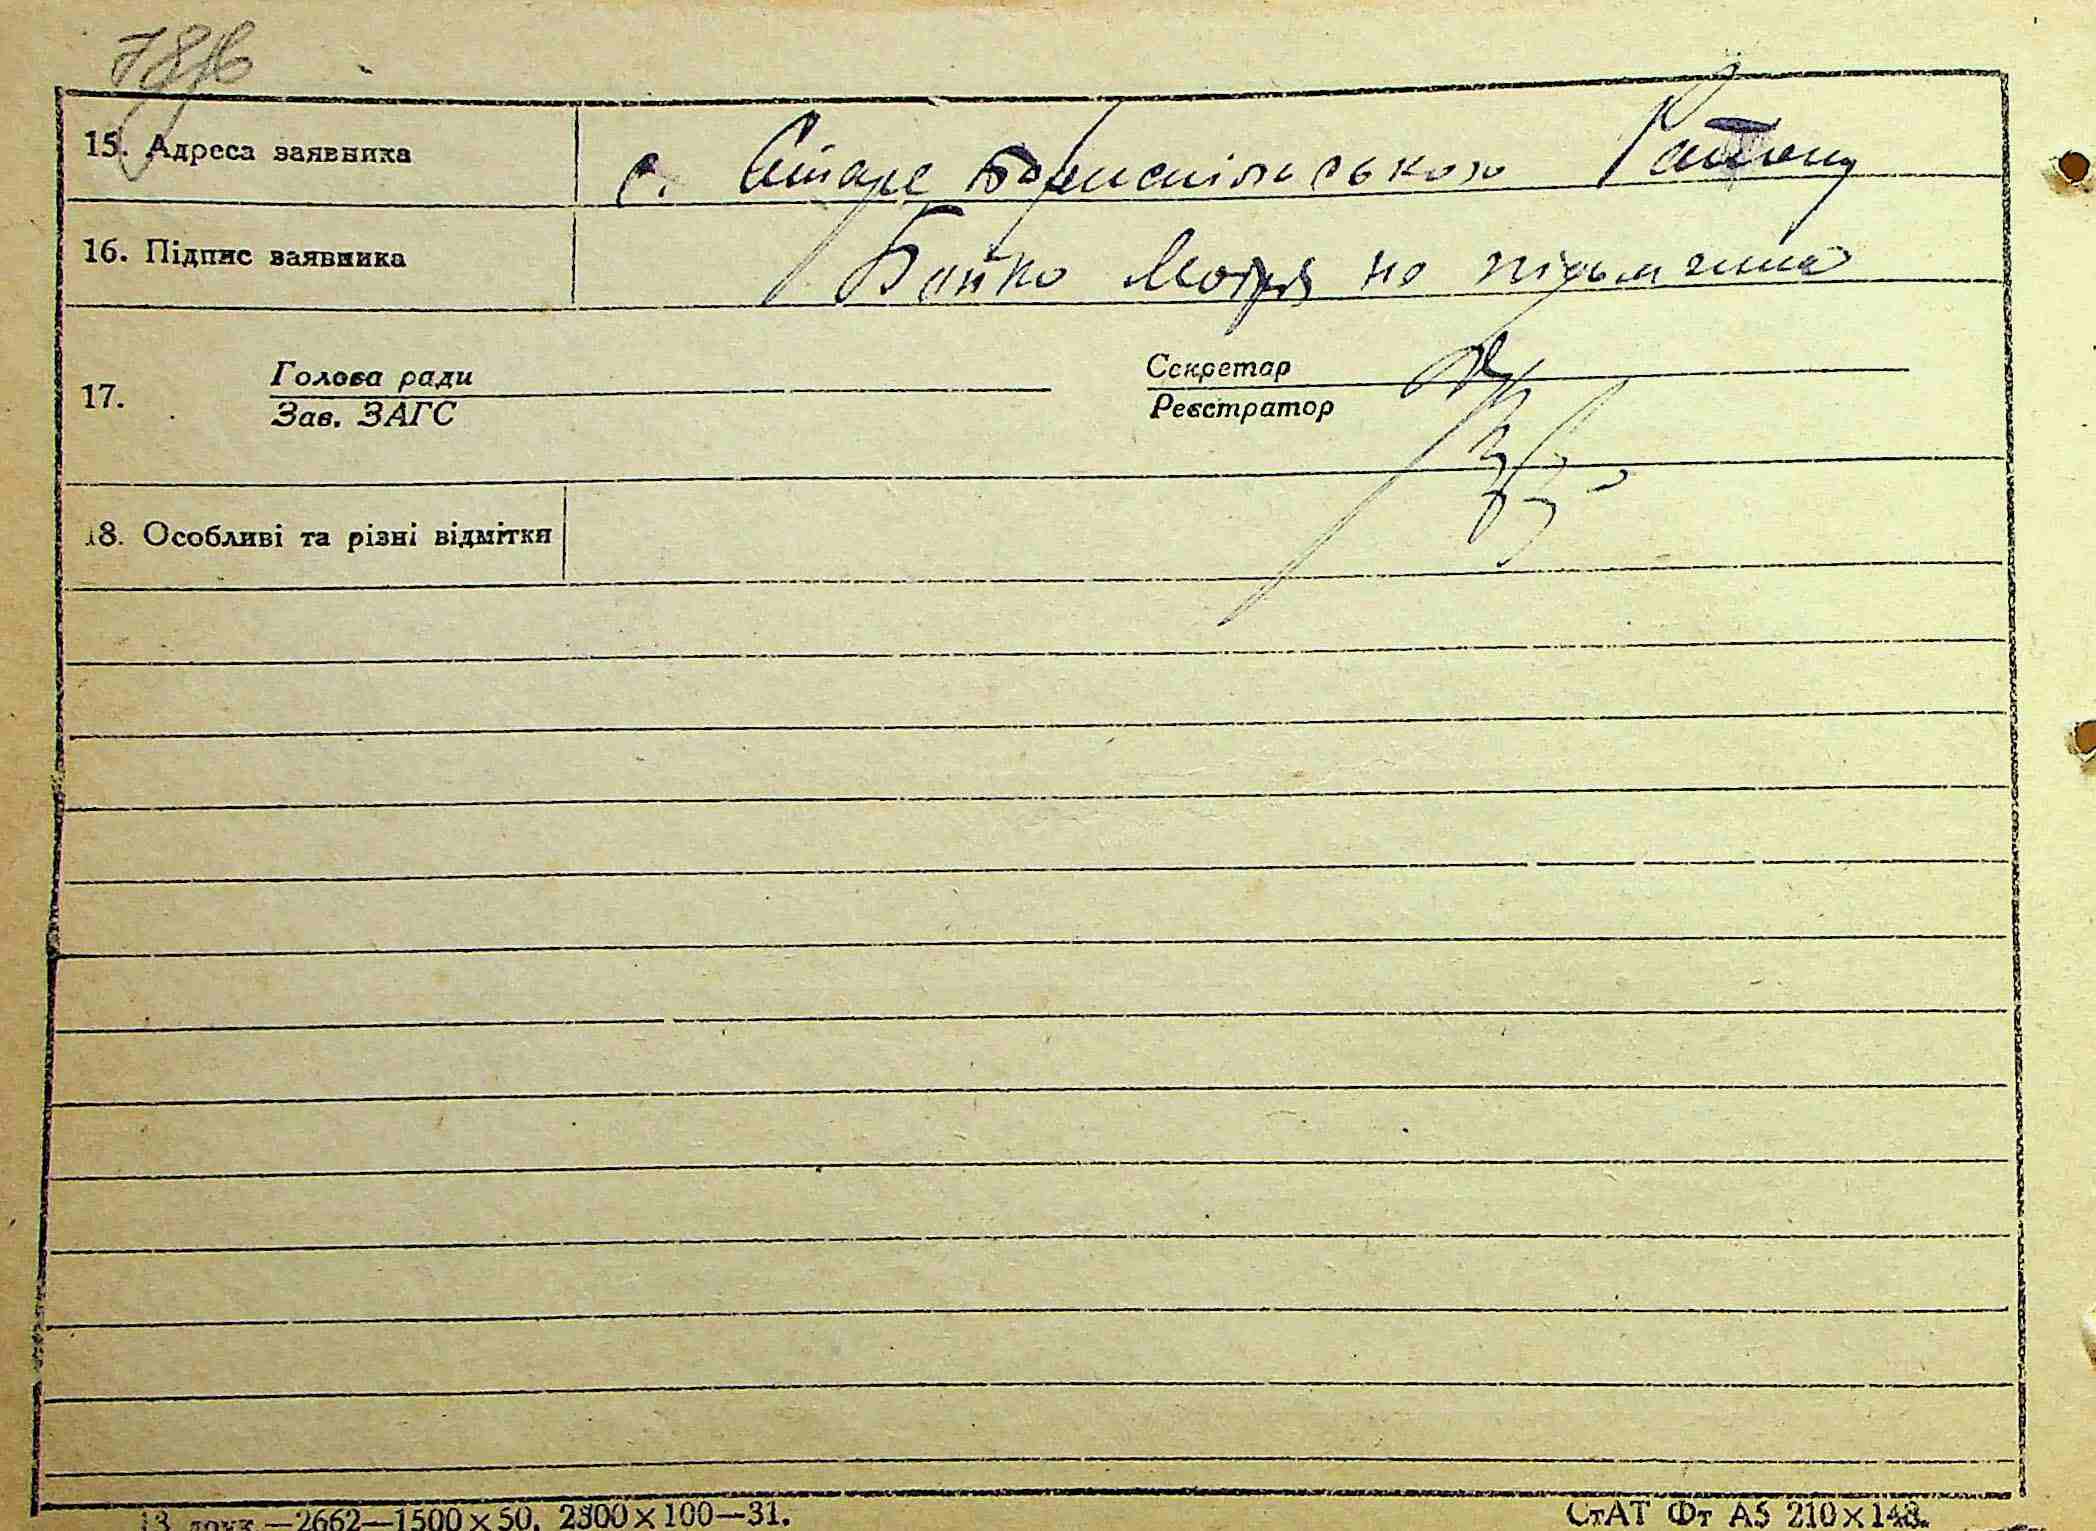 15. Адреса заявника с. Старе Бориспільського Району
16. Підпис заявника Бойко Мотря не письменна
17. Голова ради Секретар
Зав. ЗАГС Реєстратор
18. Особливі та різні відмітки
13 друк.—2662—1500×50. 2300×100—31. СтАТ Фт А5 210×148.